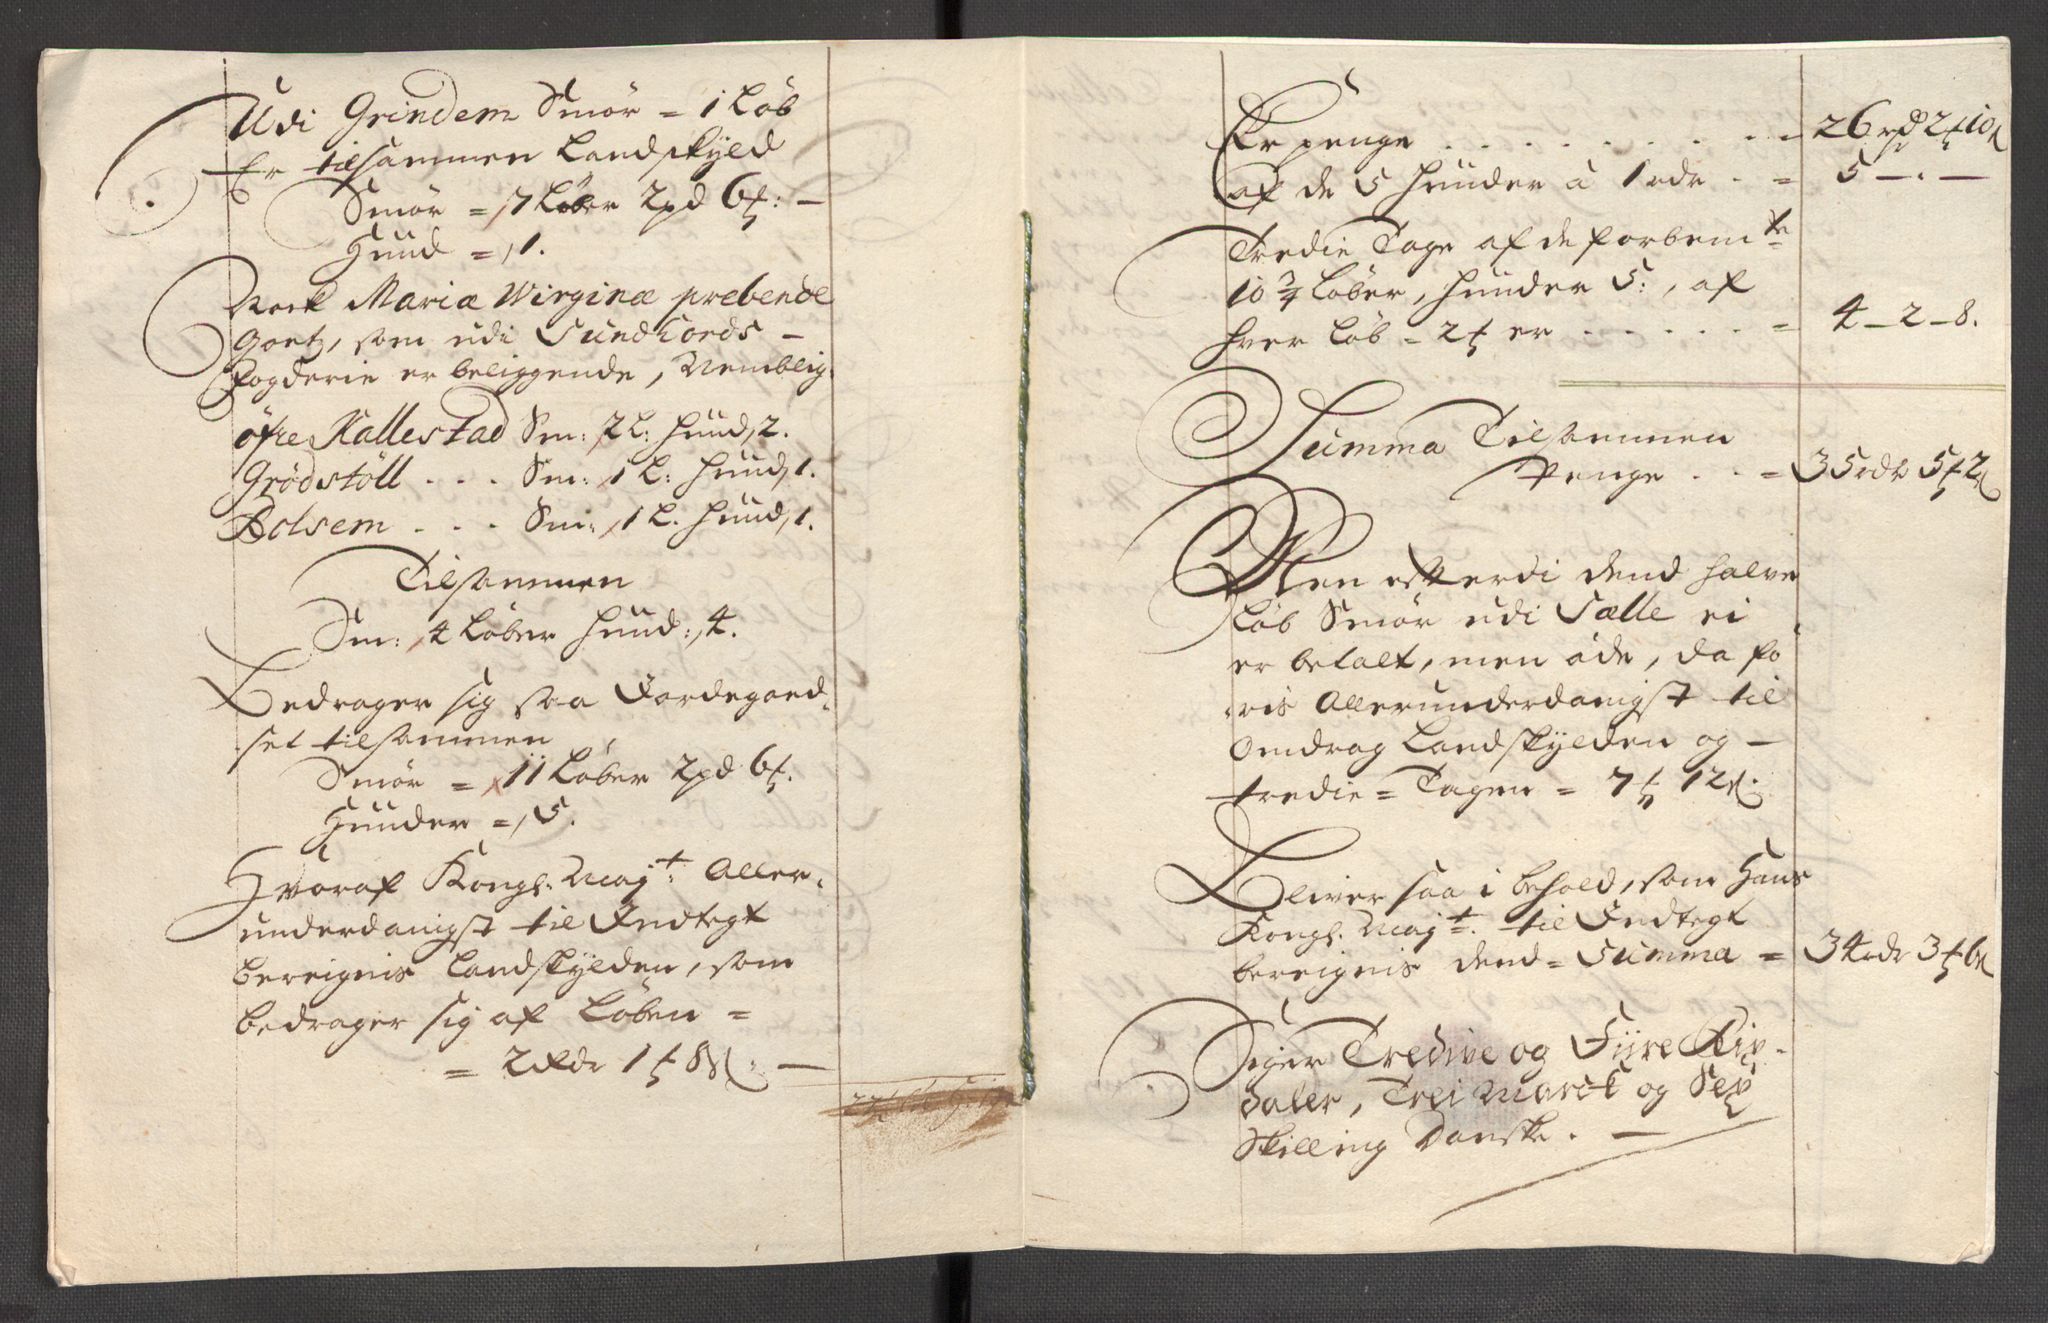 Udi Grindem Smør = 1 Løb
Er tilsammen Landskyld
Smør = 7 Løber 2 pd 6 ℔: –
Huud = 1.
Noch Mariæ Wirginæ prebende
Goetz, som udi Sundfiords –
fogderie er beliggende, Nemblig.
öfre Kallestad Sm: 2 L: Huud, 2.
Grödstöll . . . Sm: 1 L: Huud, 1.
Bolsem . . . Sm: 1 L. Huud, 1.
Tilsammen
Sm: 4 Løber Huud:, 4.
Bedrager sig saa Jordegoed-
set tilsammen
Smør = 11 Løber 2 pd 6 ℔.
Huuder =, 5.
Hvoraf Kongl: Maj:t Aller-
underdanigst til Indtegt
bereignis Landskylden, som
bedrager sig af Løben =
= 2 Rdr 1 ℔ 8 s: –
Er penge . . . . . . . . = 26 rd 2 ℔ 10 s
af de 5 Huuder à 1 rdr . = 5 – . –
Tredie Tage af de forbem:te
10 3/4 Løber, Huuder 5:, af
hver Løb = 2 ℔ er . . . . . = 4 – 2 – 8.
Summa Tilsammen
Penge . . = 35 rdr 5 ℔ 2 s
Men efterdi dend halve
Løb Smør udi Sælle ei
er betalt, men øde, da fo-
ris Allerunderdanigst til
Omdrag Landskylden og –
tredie = Tagen = 7 ℔ 12 s.
Bliver saa i behold, som Hans
Kongl: Maj:t til Indtegt
bereignis dend = Summa = 34 rdr 3 ℔ 6 s
Siger Tredive og Fiire Rix-
daler, Trei Marck og Sex
Skilling Danske. –